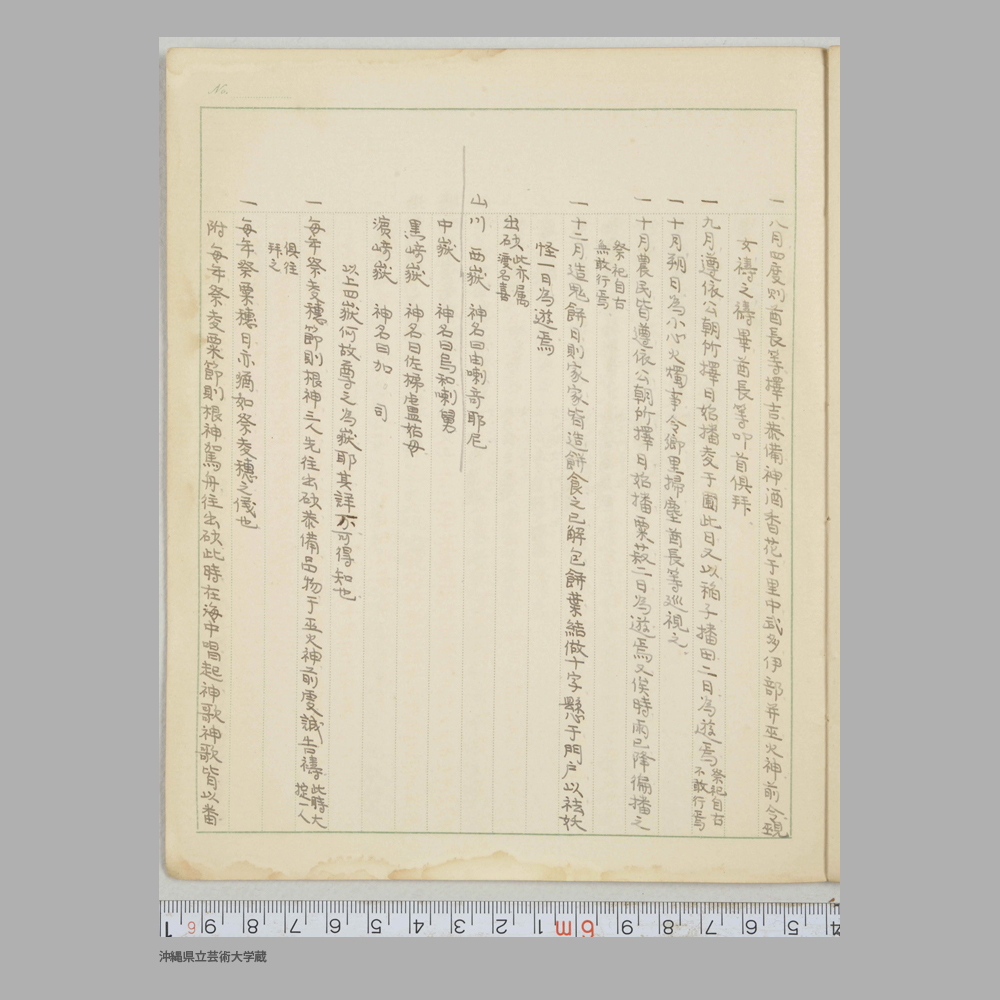 No.
一 八月四度則酋長等擇吉恭備神酒香花于里中武多伊部并巫火神前令覡
女禱之禱畢酋長等叩首俱拜
一 九月遵依公朝所擇日始播麦于圃此日又以稲子播田二日為遊焉 祭祀自古不敢行焉
一 十月朔日為小心火燭事令郷里掃塵酋長等巡視之
一 十月農民皆遵依公朝所擇日始播粟菽二日為遊焉又俟時雨已降徧播之
祭祀自古無敢行焉
一 十二月造鬼餅日則家家皆造餅食之已解包餅葉結做十字懸于門戸以祛妖
怪一日為遊焉
出砍 此亦属濱名喜
山川 西嶽 神名曰由喇奇耶尼
中嶽 神名曰烏和喇舅
黒﨑嶽 神名曰佐梯盧姑毋
濱﨑嶽 神名曰加。司
以上四嶽何故尊之為嶽耶其詳不可得知也
一 毎年祭麦穗節則根神三人先往出砍恭備品物于巫火神前虔誠告禱 此時大掟一人
俱往拜之
一 毎年祭粟穗日亦猶如祭麦穗之儀也
附 毎年祭麦粟節則根神駕舟往出砍此時在海中唱起神歌神歌皆以番
1 6 9 8 7 6 5 4 3 2 1 6m 9 8 7 6 5 4
沖縄県立芸術大学蔵